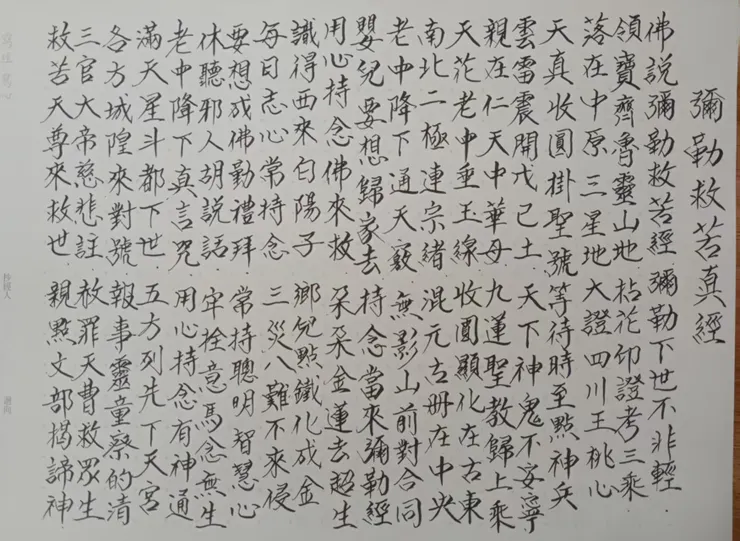 彌勒救苦真經
佛說彌勒救苦經 彌勒下世不非輕
領寶齊魯靈山地 拈花印證考三乘
落在中原三星地 大證四川王桃心
天真收圓掛聖號 等待時至點神兵
雲雷震開戊己土 天下神鬼不安寧
親在仁天中華母 九蓮聖教歸上乘
天花老中垂玉線 收圓顯化在古東
南北二極連宗緒 混元古冊在中央
老中降下通天竅 無影山前對合同
嬰兒要想歸家去 持念當來彌勒經
用心持念佛來救 朵朵金蓮去超生
識得西來白陽子 鄉兒點鐵化成金
每日志心常持念 三災八難不來侵
要想成佛勤禮拜 常持聰明智慧心
休聽邪人胡說話 牢拴意馬念無生
老中降下真言咒 用心持念有神通
滿天星斗都下世 五方列先下天宮
各方城隍來對號 報事靈童察的清
三官大帝慈悲註 赦罪天曹救眾生
救苦天尊來救世 親點文部揭諦神
抄經人